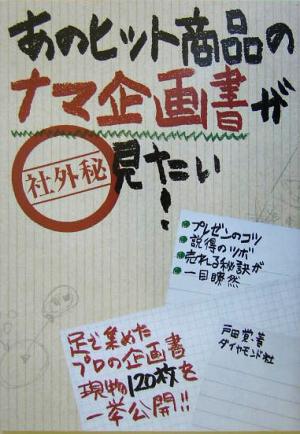 あのヒット商品の
ナマ企画書が
社外秘
見たい!
プレゼンのコツ
説得のツボ
売れる秘訣が
一目瞭然
戸田覚・著
ダイヤモンド社
足で集めた
プロの企画書
現物120枚を
一挙公開!!